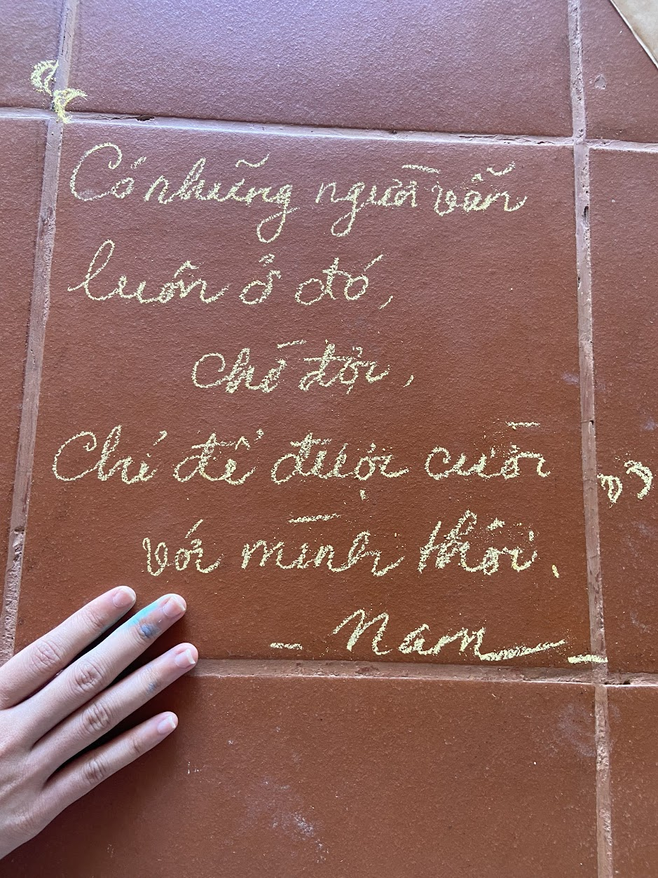 “Có những người vẫn
luôn ở đó,
chờ đợi,
Chỉ để được cười
với mình thôi.”
- Nam -